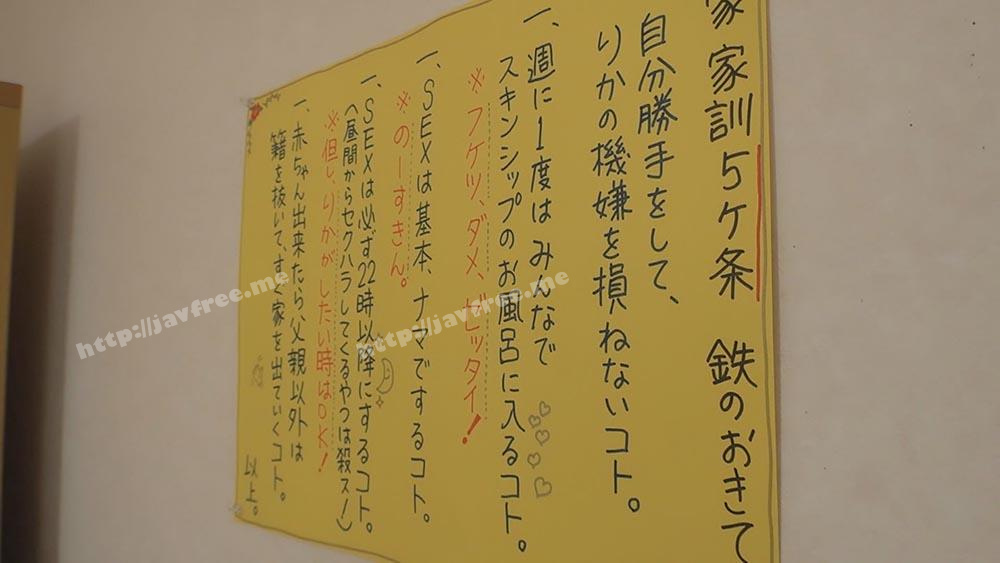 家家訓5ヶ条 鉄のおきて
自分勝手をして、
りかの機嫌を損ねないコト。
一、週に1度はみんなで
スキンシップのお風呂に入るコト。
※フケツ、ダメ、ゼッタイ!
一、SEXは基本、ナマでするコト。
※のーすきん。
一、SEXは必ず22時以降にするコト。
(昼間からセクハラしてくるやつは殺ス!)
※但し、りかがしたい時はOK!
一、赤ちゃん出来たら、父親以外は
籍を抜いて、すぐ家を出ていくコト。
以上。
http://javfree.me
http://javfree.me